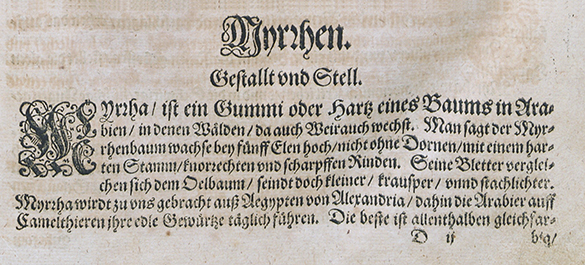 Myrrhen.
Gestallt vnd Stell.
MYrrha / ist ein Gummi oder Hartz eines Baums in Ara-
bien / in denen Wälden / da auch Weirauch wechst. Man sagt der Myr-
rhenbaum wachse bey fünff Elen hoch / nicht ohne Dornen / mit einem har-
ten Stamm / knorrechten vnd scharpffen Rinden. Seine Bletter verglei-
chen sich dem Oelbaum / seindt doch kleiner / krausper / vnnd stachlichter.
Myrrha wirdt zu vns gebracht auß Aegypten von Alexandria / dahin die Arabier auff
Camelthieren jhre edle Gewürtze täglich führen. Die beste ist allenthalben gleichfar-
D ij big /